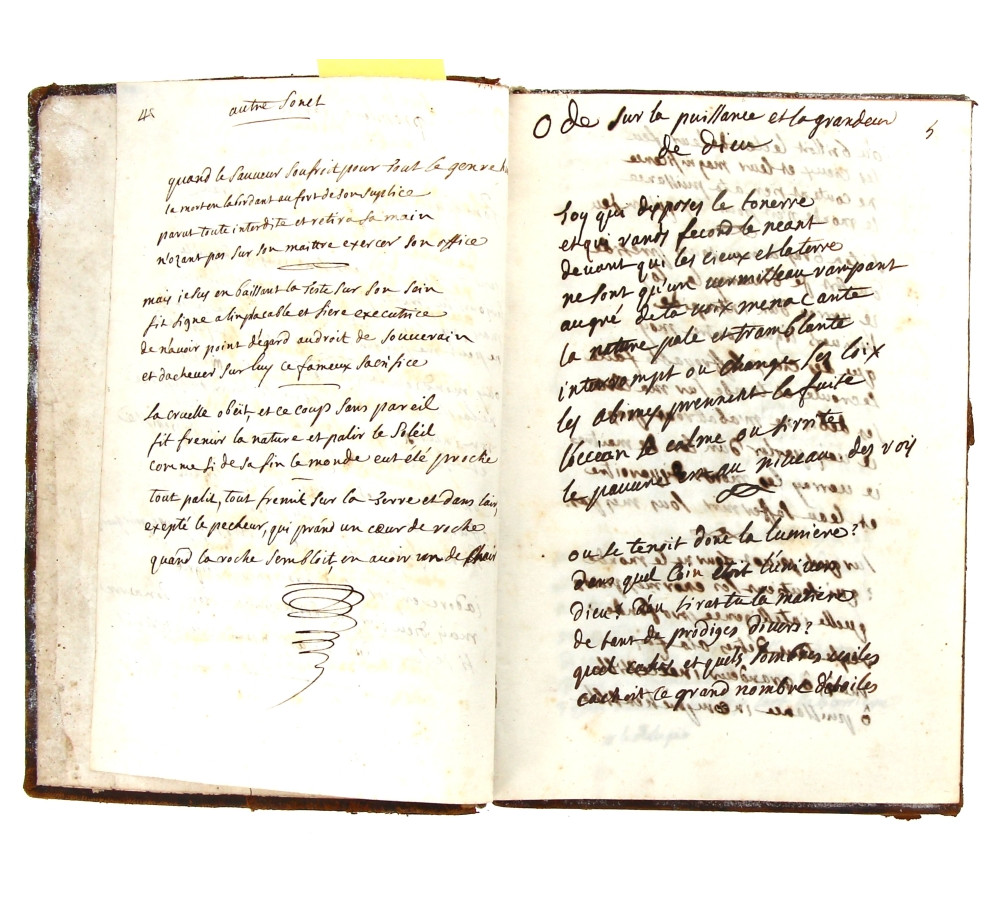 4
autre sonet
quand le sauveur soufroit pour tout le genre
la mort en labordant au fort de son suplice
parut toute interdite et retira sa main
n'ozant pas sur son maitre exercer son office
mais jesus en baissant la teste sur son sein
fit signe a linplacable et fiere executrice
de n'avoir point dégard au droit de souverain
et dachever sur luy ce fameux sacrifice
la cruelle obéit et ce coup sans pareil
fit fremir la nature et palir le soleil
comme si de sa fin le monde eut été proche
tout palit, tout fremit sur la terre et dans lair
exepté le pecheur, qui prand un cœur de roche
quand la roche sembloit en avoir un de chair
5
Ode sur la puissance et la grandeur
de dieu
toy qui disposes le tonerre
et qui rands fecond le neant
devant qui les cieux et la terre
ne sont qu'un vermisseau rampant
au gré de ta voix menacante
la nature pale et tramblante
interrompt ou change ses loix
les abimes prennent la fuite
loccéan se calme ou sirrite
le pauvre est au niveau des rois
ou se tenoit donc la lumiere?
dans quel coin etoit l'univers
dieu! d'ou tiras tu la matiere
de tant de prodiges divers?
quel et quels sombres voiles
cachoit ce grand nombre détoiles
ô puissance